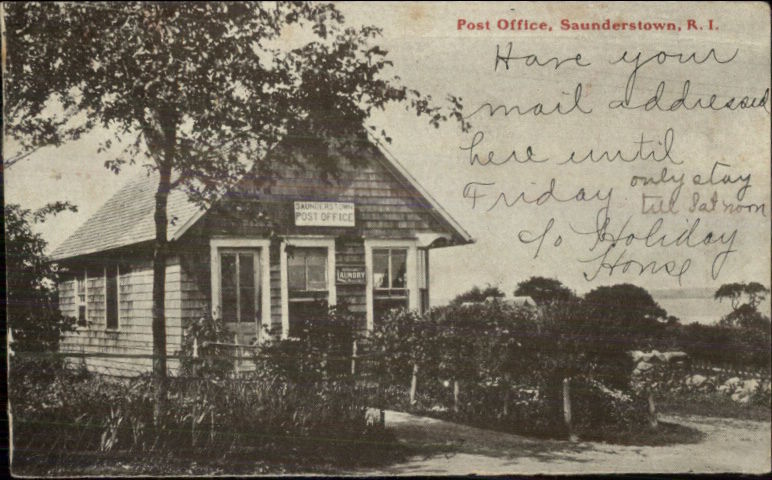 Post Office, Saunderstown, R. I.
Have your
mail addressed
here until
Friday only stay
till Sat noon
c/o Holiday
House
SAUNDERSTOWN
POST OFFICE
LAUNDRY